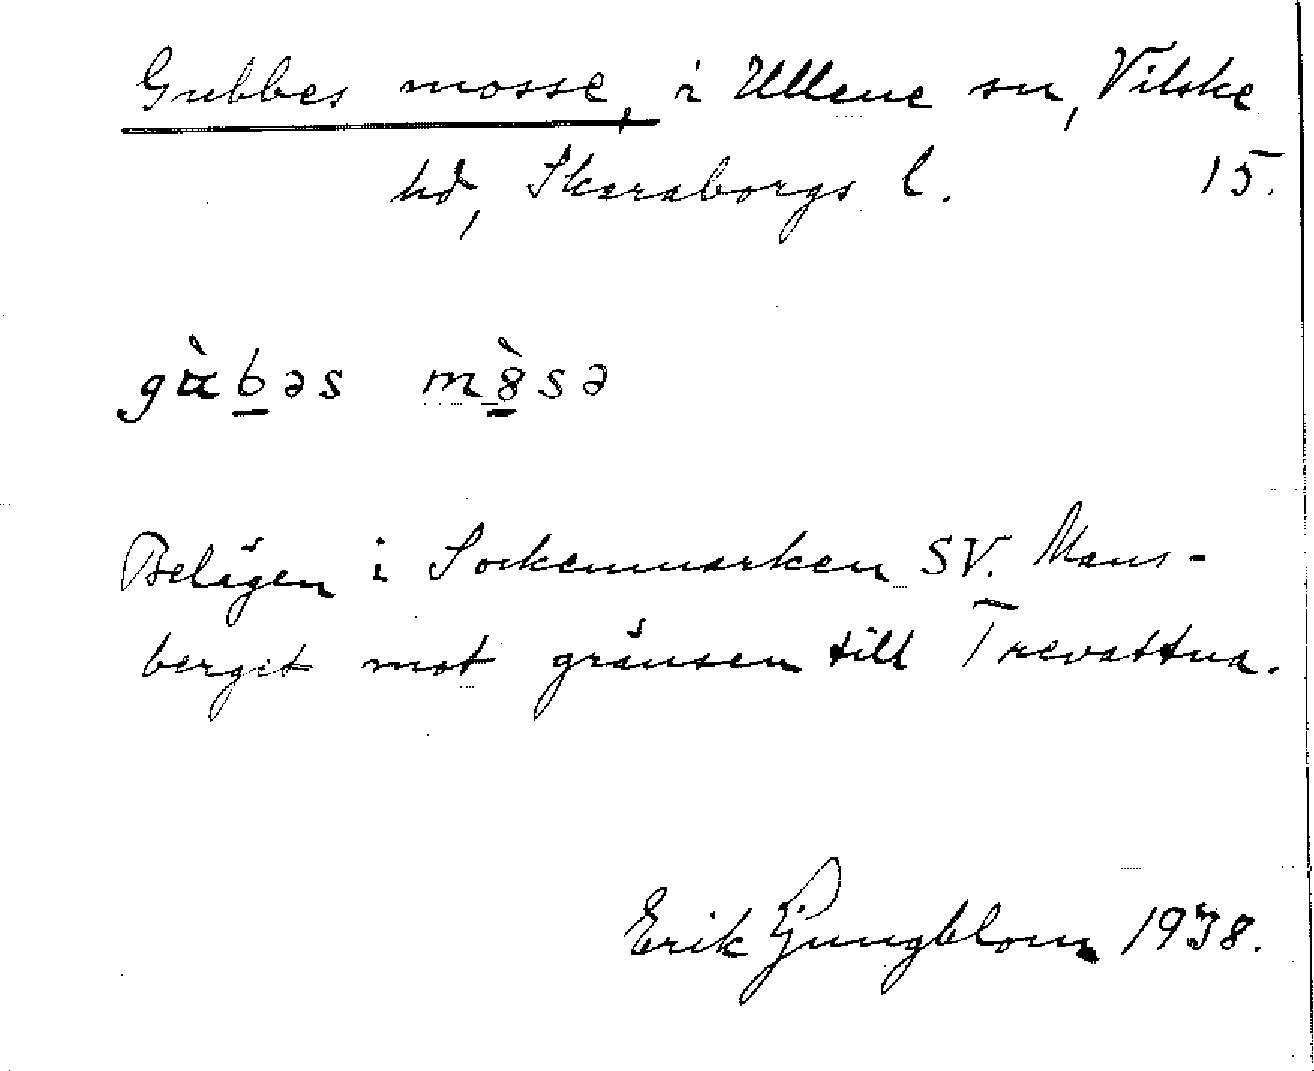 Gubbes mosse, i Ullene sn, Vilske
hd, Skaraborgs l. 15.
gɑ̀b̲əs m8̲̀sə
Belägen i Sockenmarken SV. Mans-
berget mot gränsen till Trevattna.
Erik Ljungblom 1938.